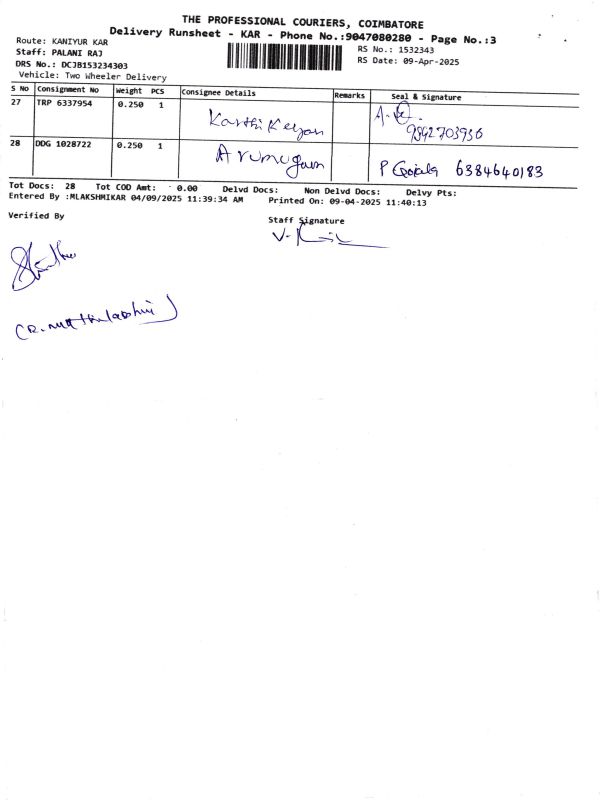 THE PROFESSIONAL COURIERS, COIMBATORE
Delivery Runsheet - KAR - Phone No.:9047080280 - Page No.:3
Route: KANIYUR KAR
RS No.: 1532343
Staff: PALANI RAJ
RS Date: 09-Apr-2025
DRS No.: DCJB153234303
Vehicle: Two Wheeler Delivery
S No Consignment No Weight PCS Consignee Details Remarks Seal & Signature
27 TRP 6337954 0.250 1 Karthikeyan
9842703936
28 DDG 1028722 0.250 1 Arumugam P 6384640183
Tot Docs: 28 Tot COD Amt: 0.00 Delvd Docs: Non Delvd Docs: Delvy Pts:
Entered By :MLAKSHMIKAR 04/09/2025 11:39:34 AM Printed On: 09-04-2025 11:40:13
Verified By
Staff Signature